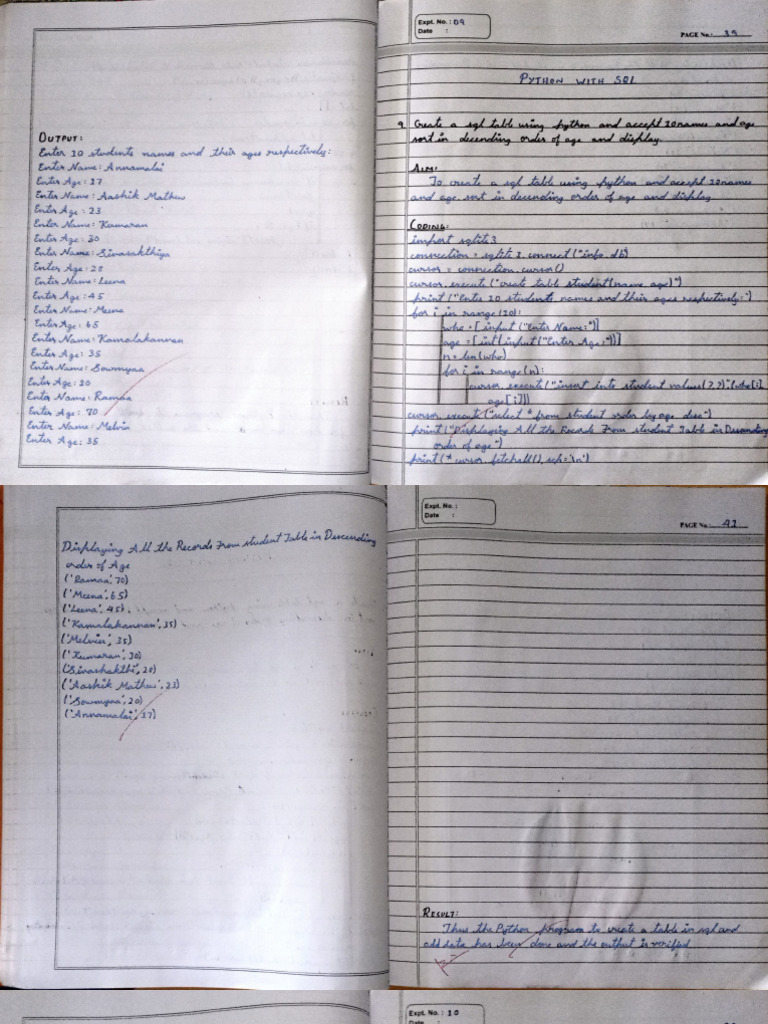 OUTPUT:
Enter 10 students names and their ages respectively:
Enter Name: Annamalai
Enter Age: 17
Enter Name: Aashik Mathew
Enter Age: 23
Enter Name: Kumaran
Enter Age: 30
Enter Name: Sivasakthiya
Enter Age: 28
Enter Name: Leena
Enter Age: 45
Enter Name: Meena
Enter Age: 65
Enter Name: Kamalakannan
Enter Age: 35
Enter Name: Sowmyaa
Enter Age: 20
Enter Name: Ramaa
Enter Age: 70
Enter Name: Melvin
Enter Age: 35
Expt. No. : 09
Date :
PAGE No.: 39
PYTHON WITH SQL
9. Create a sql table using python and accept 10 names and age
sort in decending order of age and display.
AIM:
To create a sql table using python and accept 10 names
and age sort in decending order of age and display
CODING:
import sqlite3
connection = sqlite3.connect("info.db")
cursor = connection.cursor()
cursor.execute("create table student(name, age)")
print("Enter 10 students names and their ages respectively:")
for i in range(10):
who = [input("Enter Name:")]
age = [int(input("Enter Age:"))]
n = len(who)
for i in range(n):
cursor.execute("insert into student values(?,?)",(who[i],
age[i]))
cursor.execute("select * from student order by age desc")
print("Displaying All the Records From student Table in Descending
order of age")
print(*cursor.fetchall(), sep='\n')
Displaying All the Records From student Table in Descending
order of Age
('Ramaa', 70)
('Meena', 65)
('Leena', 45)
('Kamalakannan', 35)
('Melvin', 35)
('Kumaran', 30)
('Sivashakthi', 28)
('Aashik Mathew', 23)
('Sowmyaa', 20)
('Annamalai', 17)
Expt. No. :
Date :
PAGE No.: 41
RESULT:
Thus the Python program to create a table in sql and
add data has been done and the output is verified
Expt. No. : 10
Date :